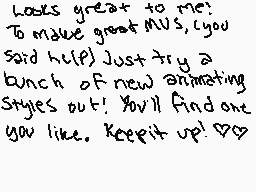 Looks great to me!
To make great MVS, (you
said help) Just try a
bunch of new animating
styles out! You'll find one
you like. Keep it up! ♡♡